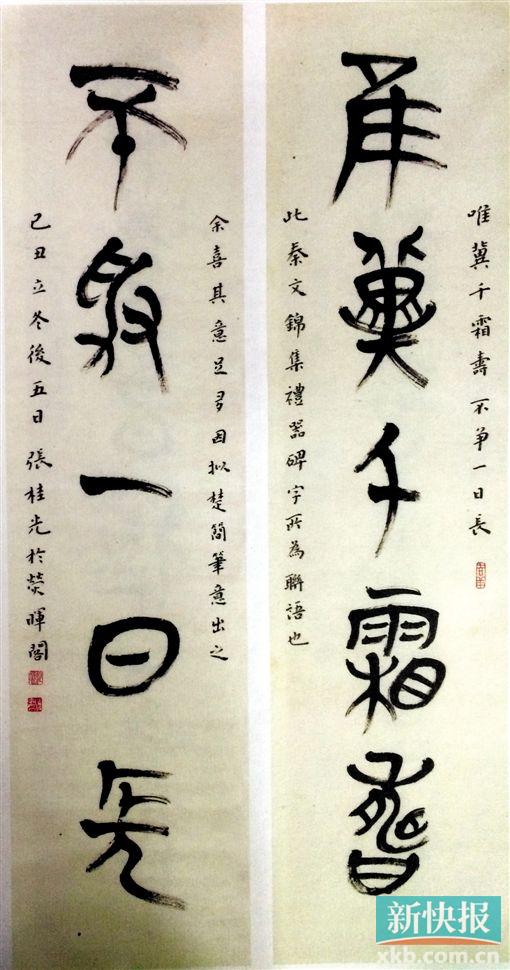 唯冀千霜壽不争一日長
隹冀千霜壽
此秦文錦集禮器碑字所為聯語也
余喜其意足多因拟楚簡筆意出之
不爭一日長
己丑立冬後五日張桂光於熒暉閣
新快报
xkb.com.cn